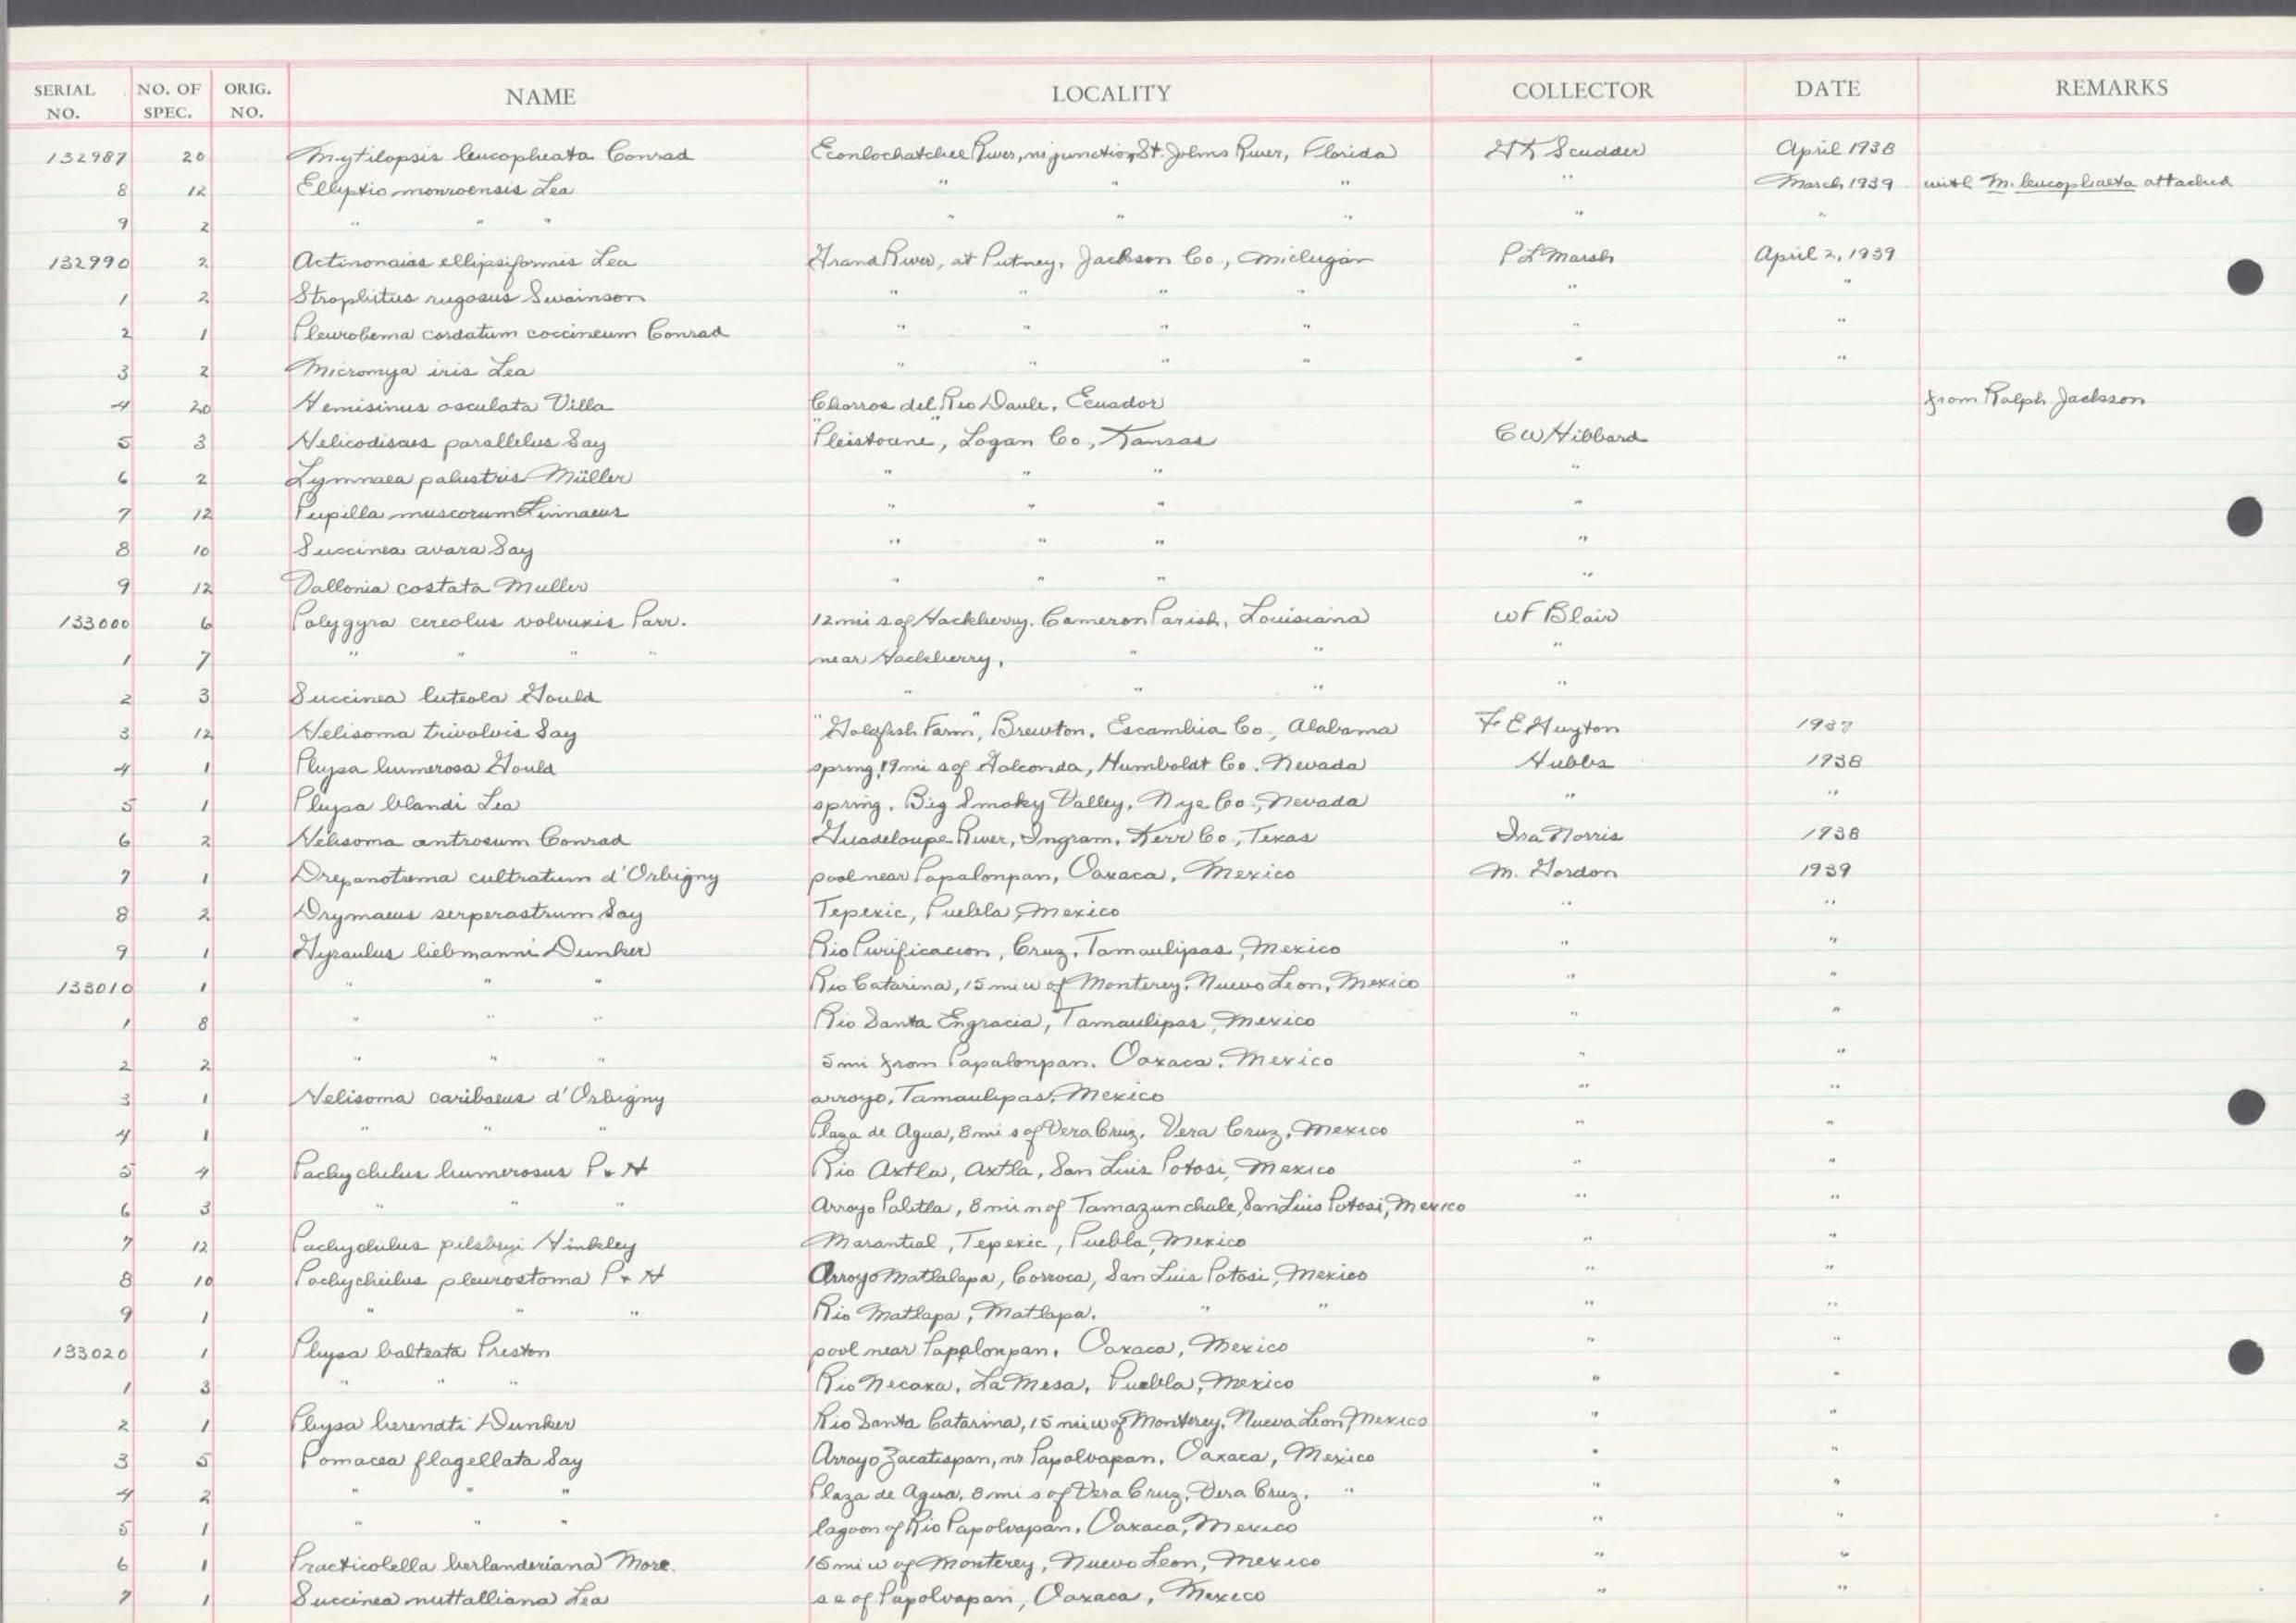 SERIAL NO. NO. OF SPEC. ORIG. NO. NAME LOCALITY COLLECTOR DATE REMARKS
132987 20 Mytilopsis leucopheata Conrad Econlochatchee River, nr junction St. Johns River, Florida H K Scudder April 1938
8 12 Elliptio monroensis Lea " " " " March 1939 with M. leucophaeta attached
9 2 " " " " " " " "
132990 2 Actinonaias ellipsiformis Lea Grand River, at Putney, Jackson Co, Michigan P L Marsh April 2, 1939
1 2 Strophitus rugosus Swainson " " " " " "
2 1 Pleurobema cordatum coccineum Conrad " " " " " "
3 2 Micromya iris Lea " " " " " "
4 20 Hemisinus osculata Villa Chorros del Rio Daule, Ecuador from Ralph Jackson
5 3 Helicodiscus parallelus Say "Pleistocene", Logan Co, Kansas C W Hibbard
6 2 Lymnaea palustris Müller " " " "
7 12 Pupilla muscorum Linnaeus " " " "
8 10 Succinea avara Say " " " "
9 12 Vallonia costata Muller " " " "
133000 6 Polygyra cereolus volvoxis Parr. 12 mi s of Hackberry, Cameron Parish, Louisiana W F Blair
1 7 " " " " near Hackberry, " " "
2 3 Succinea luteola Gould " " " "
3 12 Helisoma trivolvis Say "Goldfish Farm", Brewton, Escambia Co, Alabama F E Guyton 1937
4 1 Physa humerosa Gould spring, 19 mi s of Golconda, Humboldt Co. Nevada Hubbs 1938
5 1 Physa blandi Lea spring, Big Smoky Valley, Nye Co., Nevada " "
6 2 Helisoma antrosum Conrad Guadeloupe River, Ingram, Kerr Co, Texas Ira Norris 1938
7 1 Drepanotrema cultratum d'Orbigny pool near Papalonpan, Oaxaca, Mexico M. Gordon 1939
8 2 Drymaeus serperastrum Say Tepexic, Puebla, Mexico " "
9 1 Gyraulus liebmanni Dunker Rio Purificacion, Cruz, Tamaulipas, Mexico " "
133010 1 " " " Rio Catarina, 15 mi w of Monterey, Nuevo Leon, Mexico " "
1 8 " " " Rio Santa Engracia, Tamaulipas, Mexico " "
2 2 " " " 5 mi from Papalonpan, Oaxaca, Mexico " "
3 1 Helisoma caribaeus d'Orbigny arroyo, Tamaulipas, Mexico " "
4 1 " " " Plaza de Agua, 8 mi s of Vera Cruz, Vera Cruz, Mexico " "
5 4 Pachychilus humerosus P & H Rio Axtla, Axtla, San Luis Potosi, Mexico " "
6 3 " " " Arroyo Palitla, 8 mi n of Tamazunchale, San Luis Potosi, Mexico " "
7 12 Pachychilus pilsbryi Hinkley Marantial, Tepexic, Puebla, Mexico " "
8 10 Pachycheilus pleurostoma P & H Arroyo Matlalapa, Corroca, San Luis Potosi, Mexico " "
9 1 " " " Rio Matlapa, Matlapa, " " " "
133020 1 Physa balteata Preston pool near Papalonpan, Oaxaca, Mexico " "
1 3 " " " Rio Necaxa, La Mesa, Puebla, Mexico " "
2 1 Physa berendti Dunker Rio Santa Catarina, 15 mi w of Monterey, Nueva Leon, Mexico " "
3 5 Pomacea flagellata Say Arroyo Zacatispan, nr Papaloapan, Oaxaca, Mexico " "
4 2 " " " Plaza de Agua, 8 mi s of Vera Cruz, Vera Cruz, " " "
5 1 " " " lagoon of Rio Papoloapan, Oaxaca, Mexico " "
6 1 Practicolella berlanderiana More. 15 mi w of Monterey, Nuevo Leon, Mexico " "
7 1 Succinea nuttalliana Lea s e of Papoloapan, Oaxaca, Mexico " "